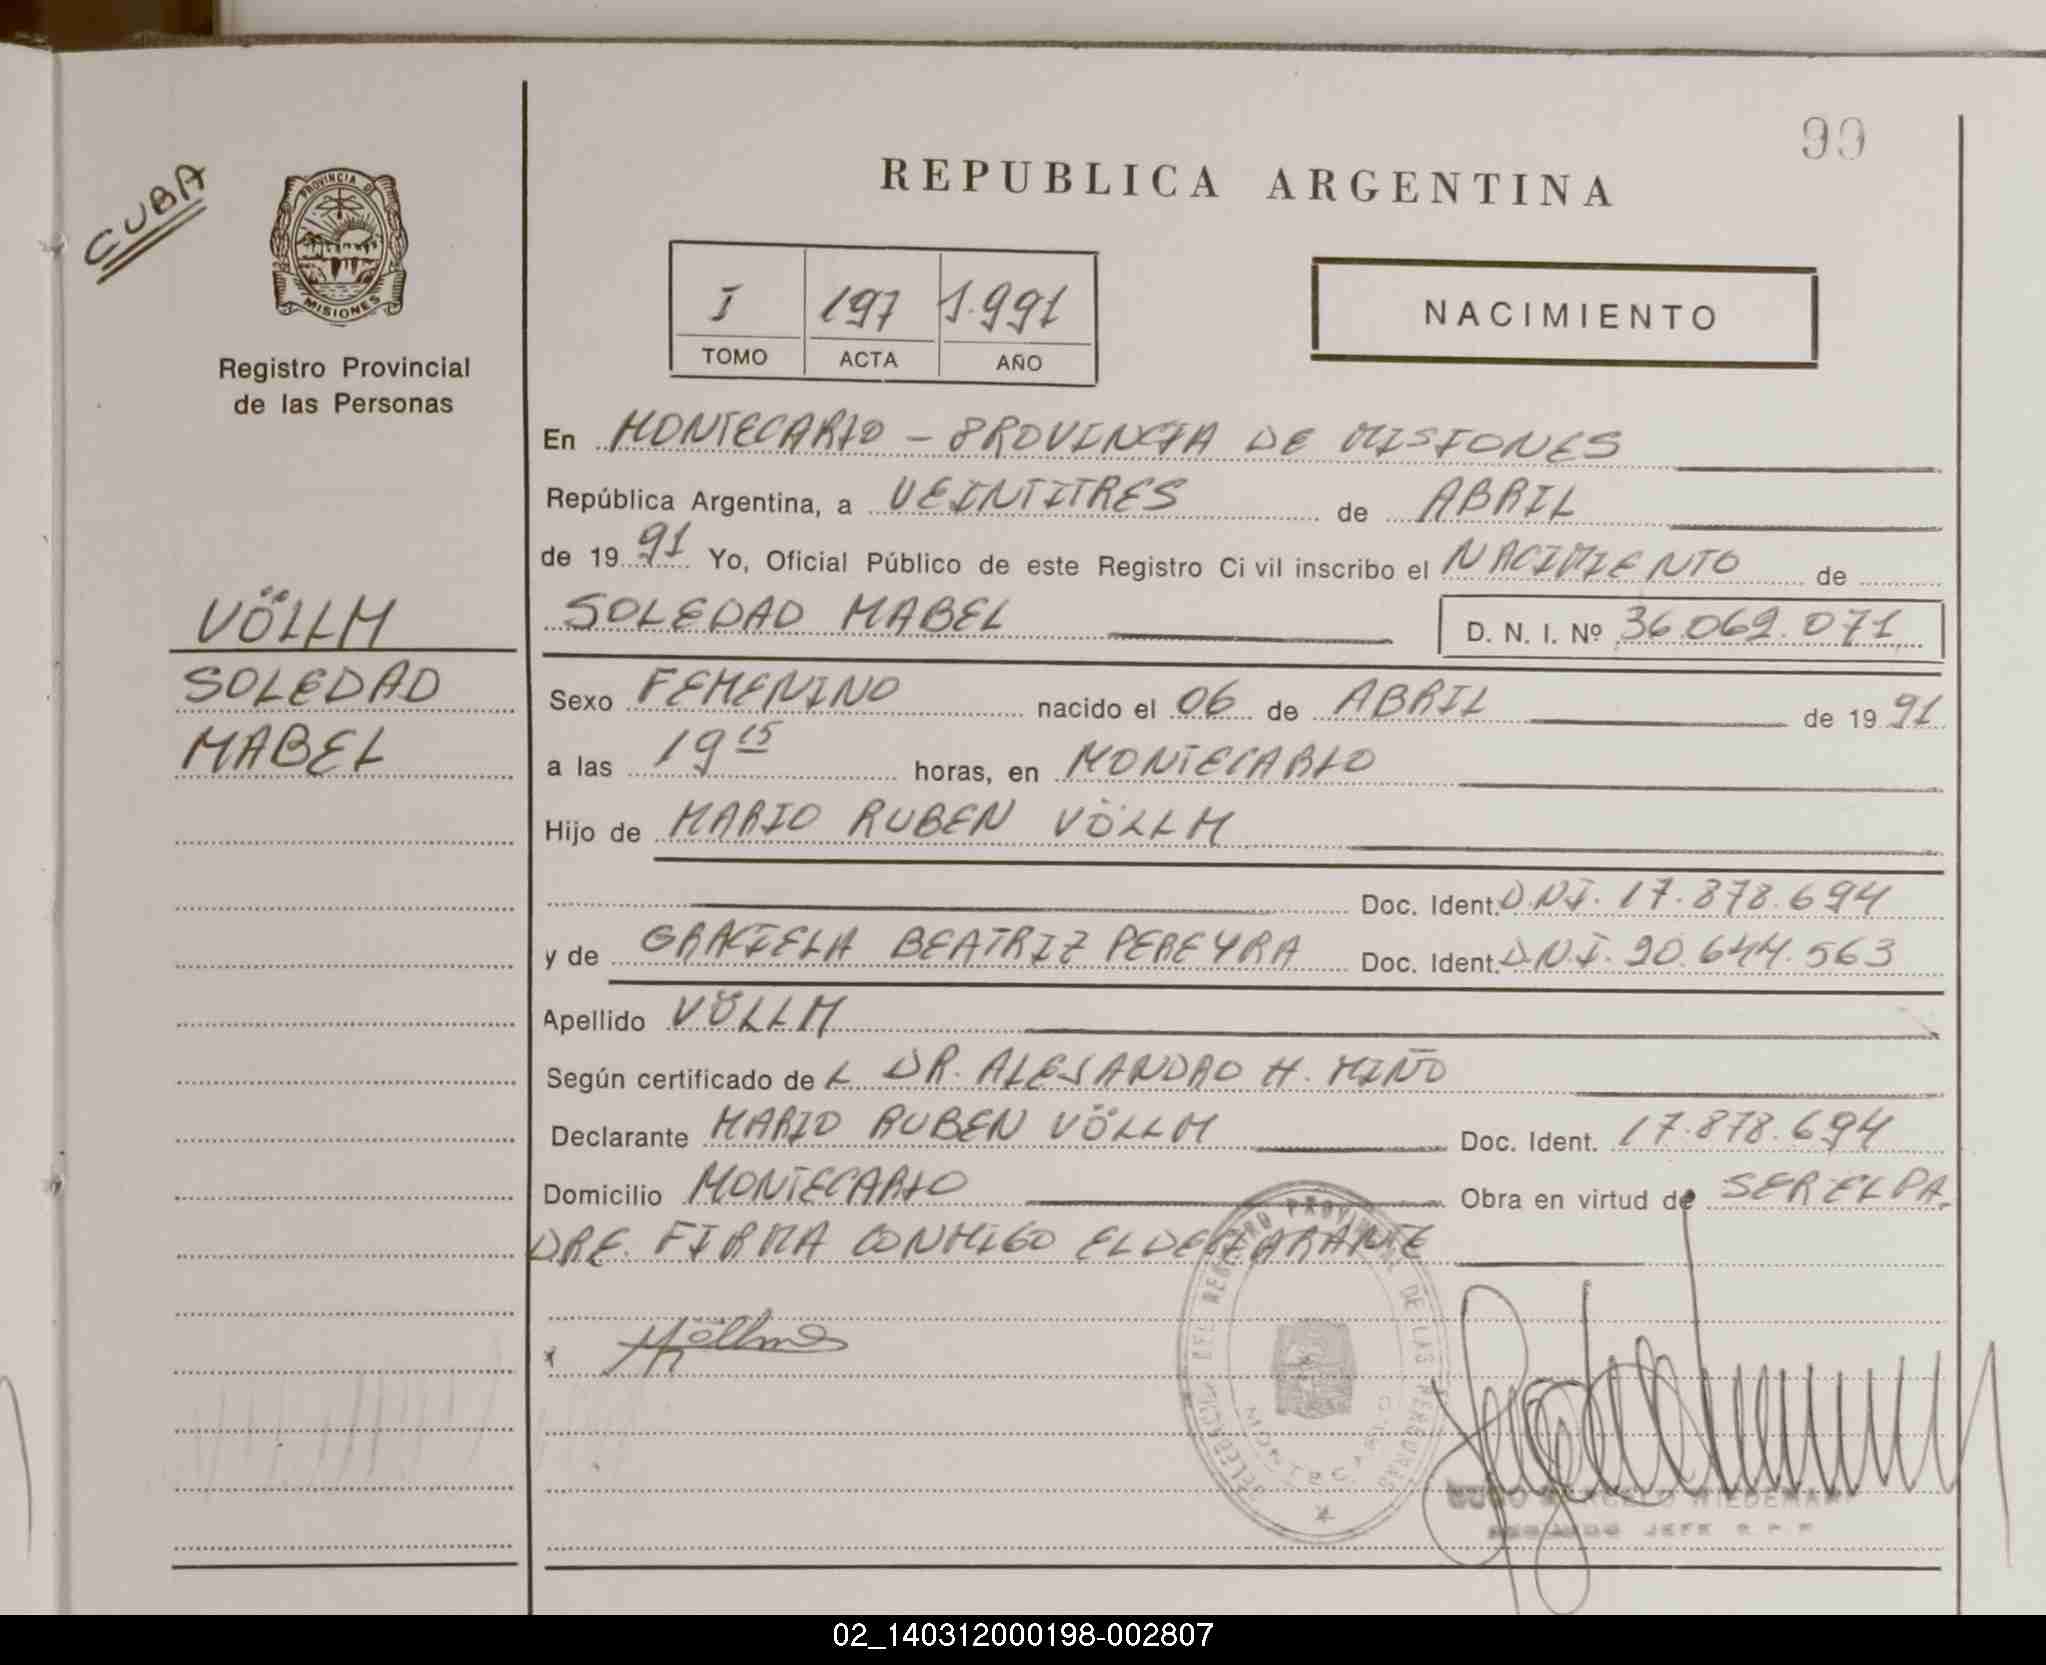 99
CUBA
PROVINCIA D
MISIONES
Registro Provincial
de las Personas
REPUBLICA ARGENTINA
I 197 1.991
TOMO ACTA AÑO
NACIMIENTO
En MONTECARLO - PROVINCIA DE MISIONES
República Argentina, a VEINTITRES de ABRIL
de 19 91 Yo, Oficial Público de este Registro Ci vil inscribo el NACIMIENTO de
SOLEDAD MABEL D. N. I. Nº 36.062.071
VÖLLM
SOLEDAD
MABEL
Sexo FEMENINO nacido el 06 de ABRIL de 19 91
a las 19 15 horas, en MONTECARLO
Hijo de MARIO RUBEN VÖLLM
Doc. Ident. D.N.I. 17.878.694
y de GRACIELA BEATRIZ PEREYRA Doc. Ident. D.N.I. 20.644.563
Apellido VÖLLM
Según certificado de L DR. ALEJANDRO H. MIÑO
Declarante MARIO RUBEN VÖLLM Doc. Ident. 17.878.694
Domicilio MONTECARLO Obra en virtud de SER EL PA
DRE. FIRMA CONMIGO EL DECLARANTE
DELEGACION DEL REGISTRO PROVINCIAL DE LAS PERSONAS
MONTECARLO
x Völlm
WIEDEMAN
JEFE R.P.P
02_140312000198-002807